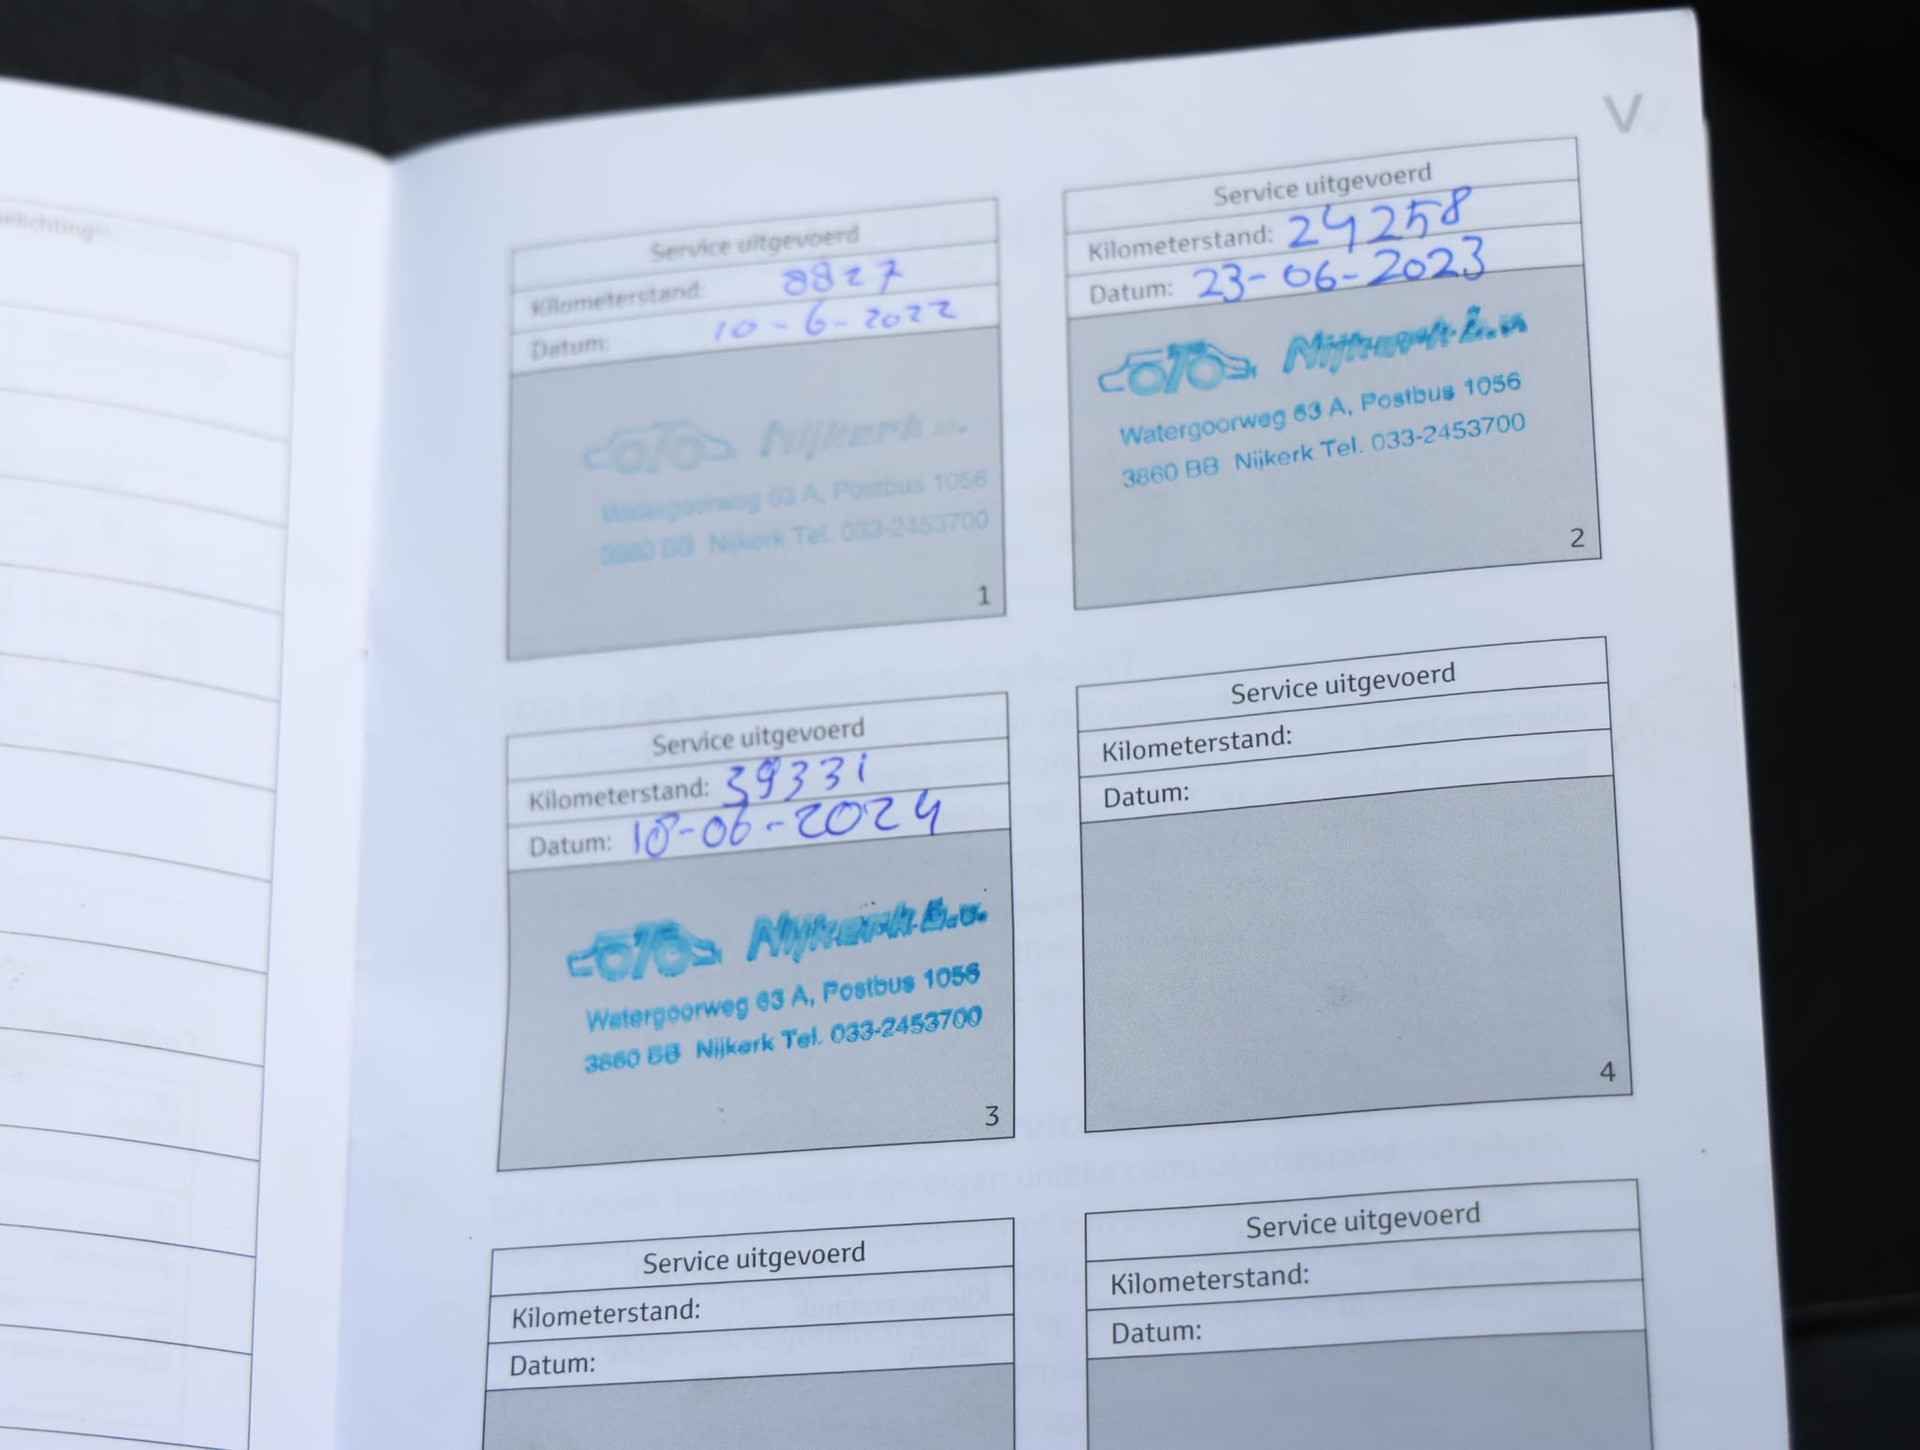 V
Service uitgevoerd
Kilometerstand: 8827
Datum: 10-6-2022
Nijkerk
Watergoorweg 63 A, Postbus 1056
3860 BB Nijkerk Tel. 033-2453700
1
Service uitgevoerd
Kilometerstand: 24258
Datum: 23-06-2023
Nijkerk B.v.
Watergoorweg 63 A, Postbus 1056
3860 BB Nijkerk Tel. 033-2453700
2
Service uitgevoerd
Kilometerstand: 39331
Datum: 18-06-2024
Nijkerk B.v.
Watergoorweg 63 A, Postbus 1056
3860 BB Nijkerk Tel. 033-2453700
3
Service uitgevoerd
Kilometerstand:
Datum:
4
Service uitgevoerd
Kilometerstand:
Datum:
Service uitgevoerd
Kilometerstand:
Datum: